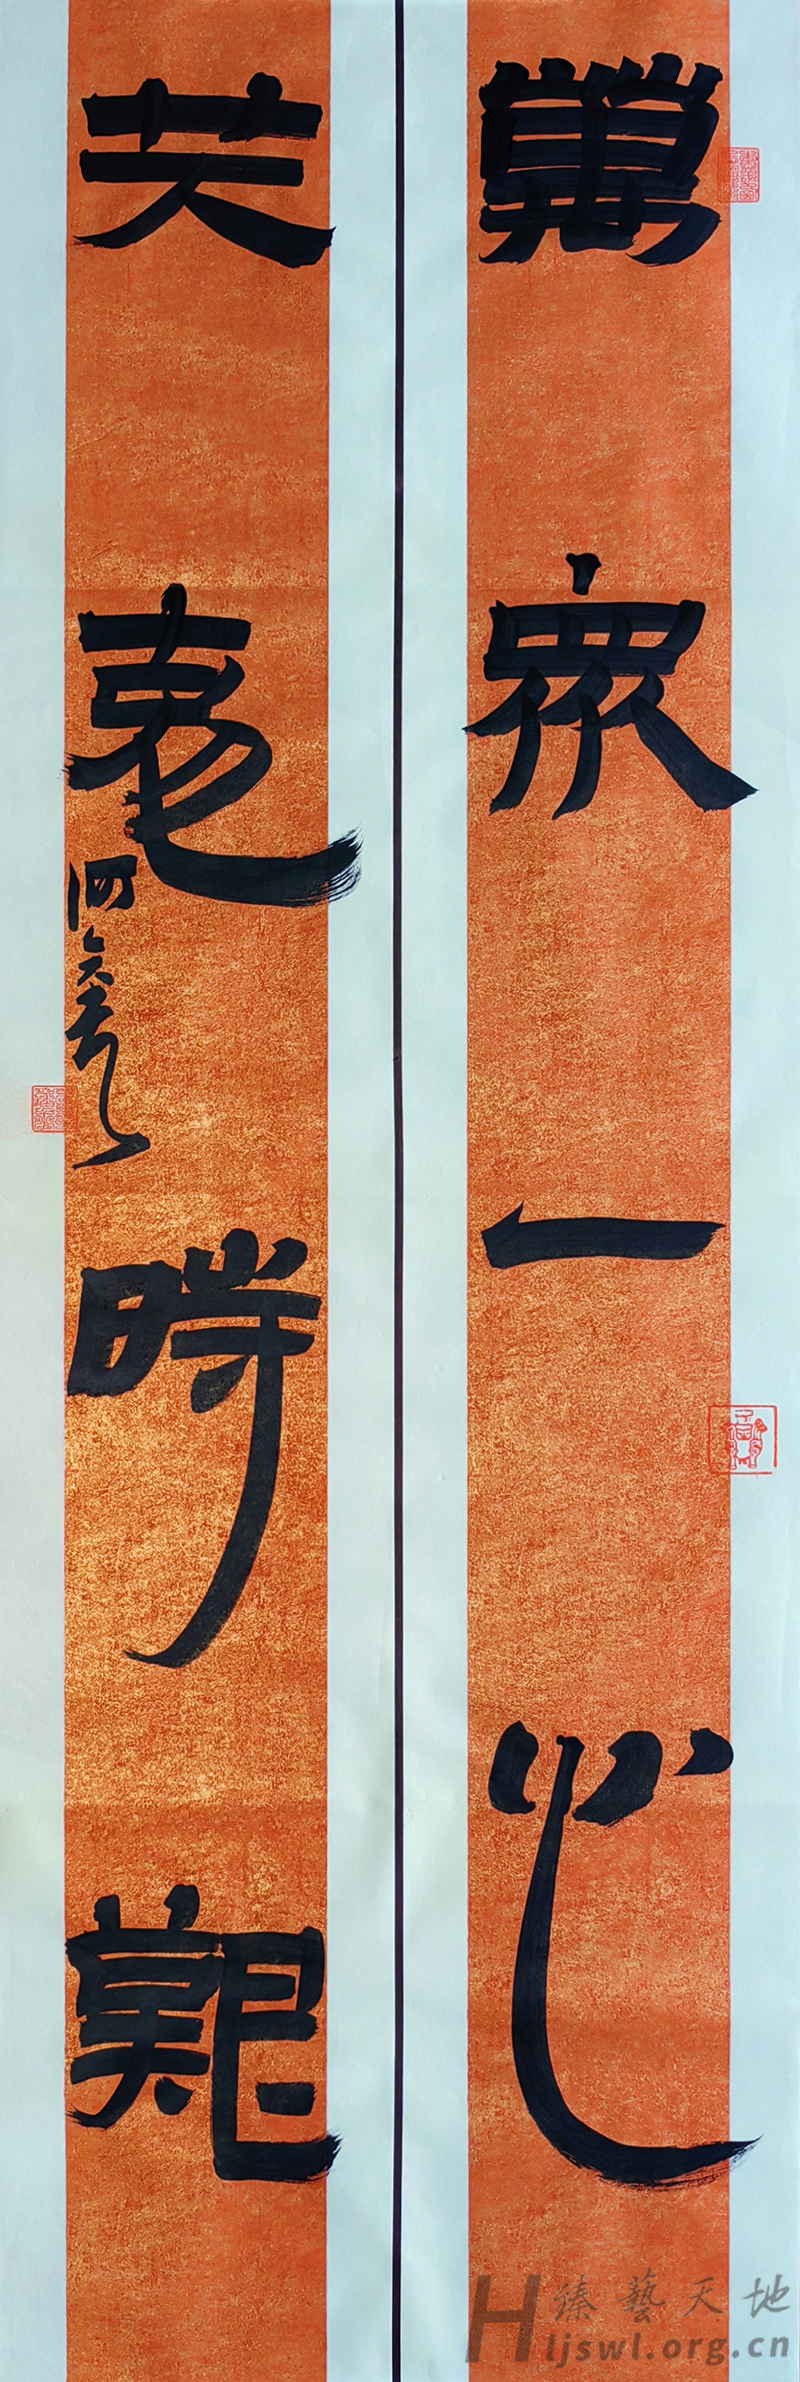 萬眾一心
共克時艱
臻藝天地
Hljswl.org.cn